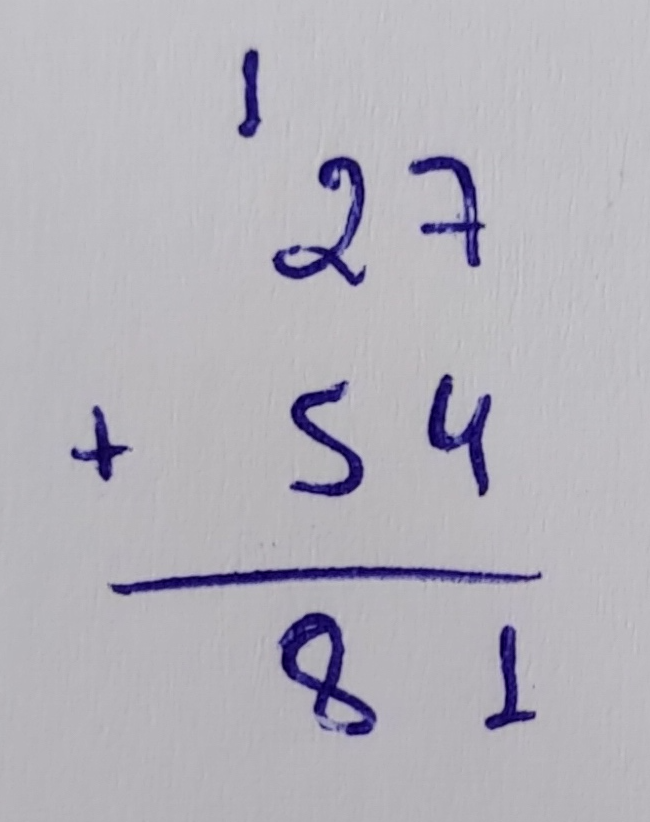 1
27
+ 54
81